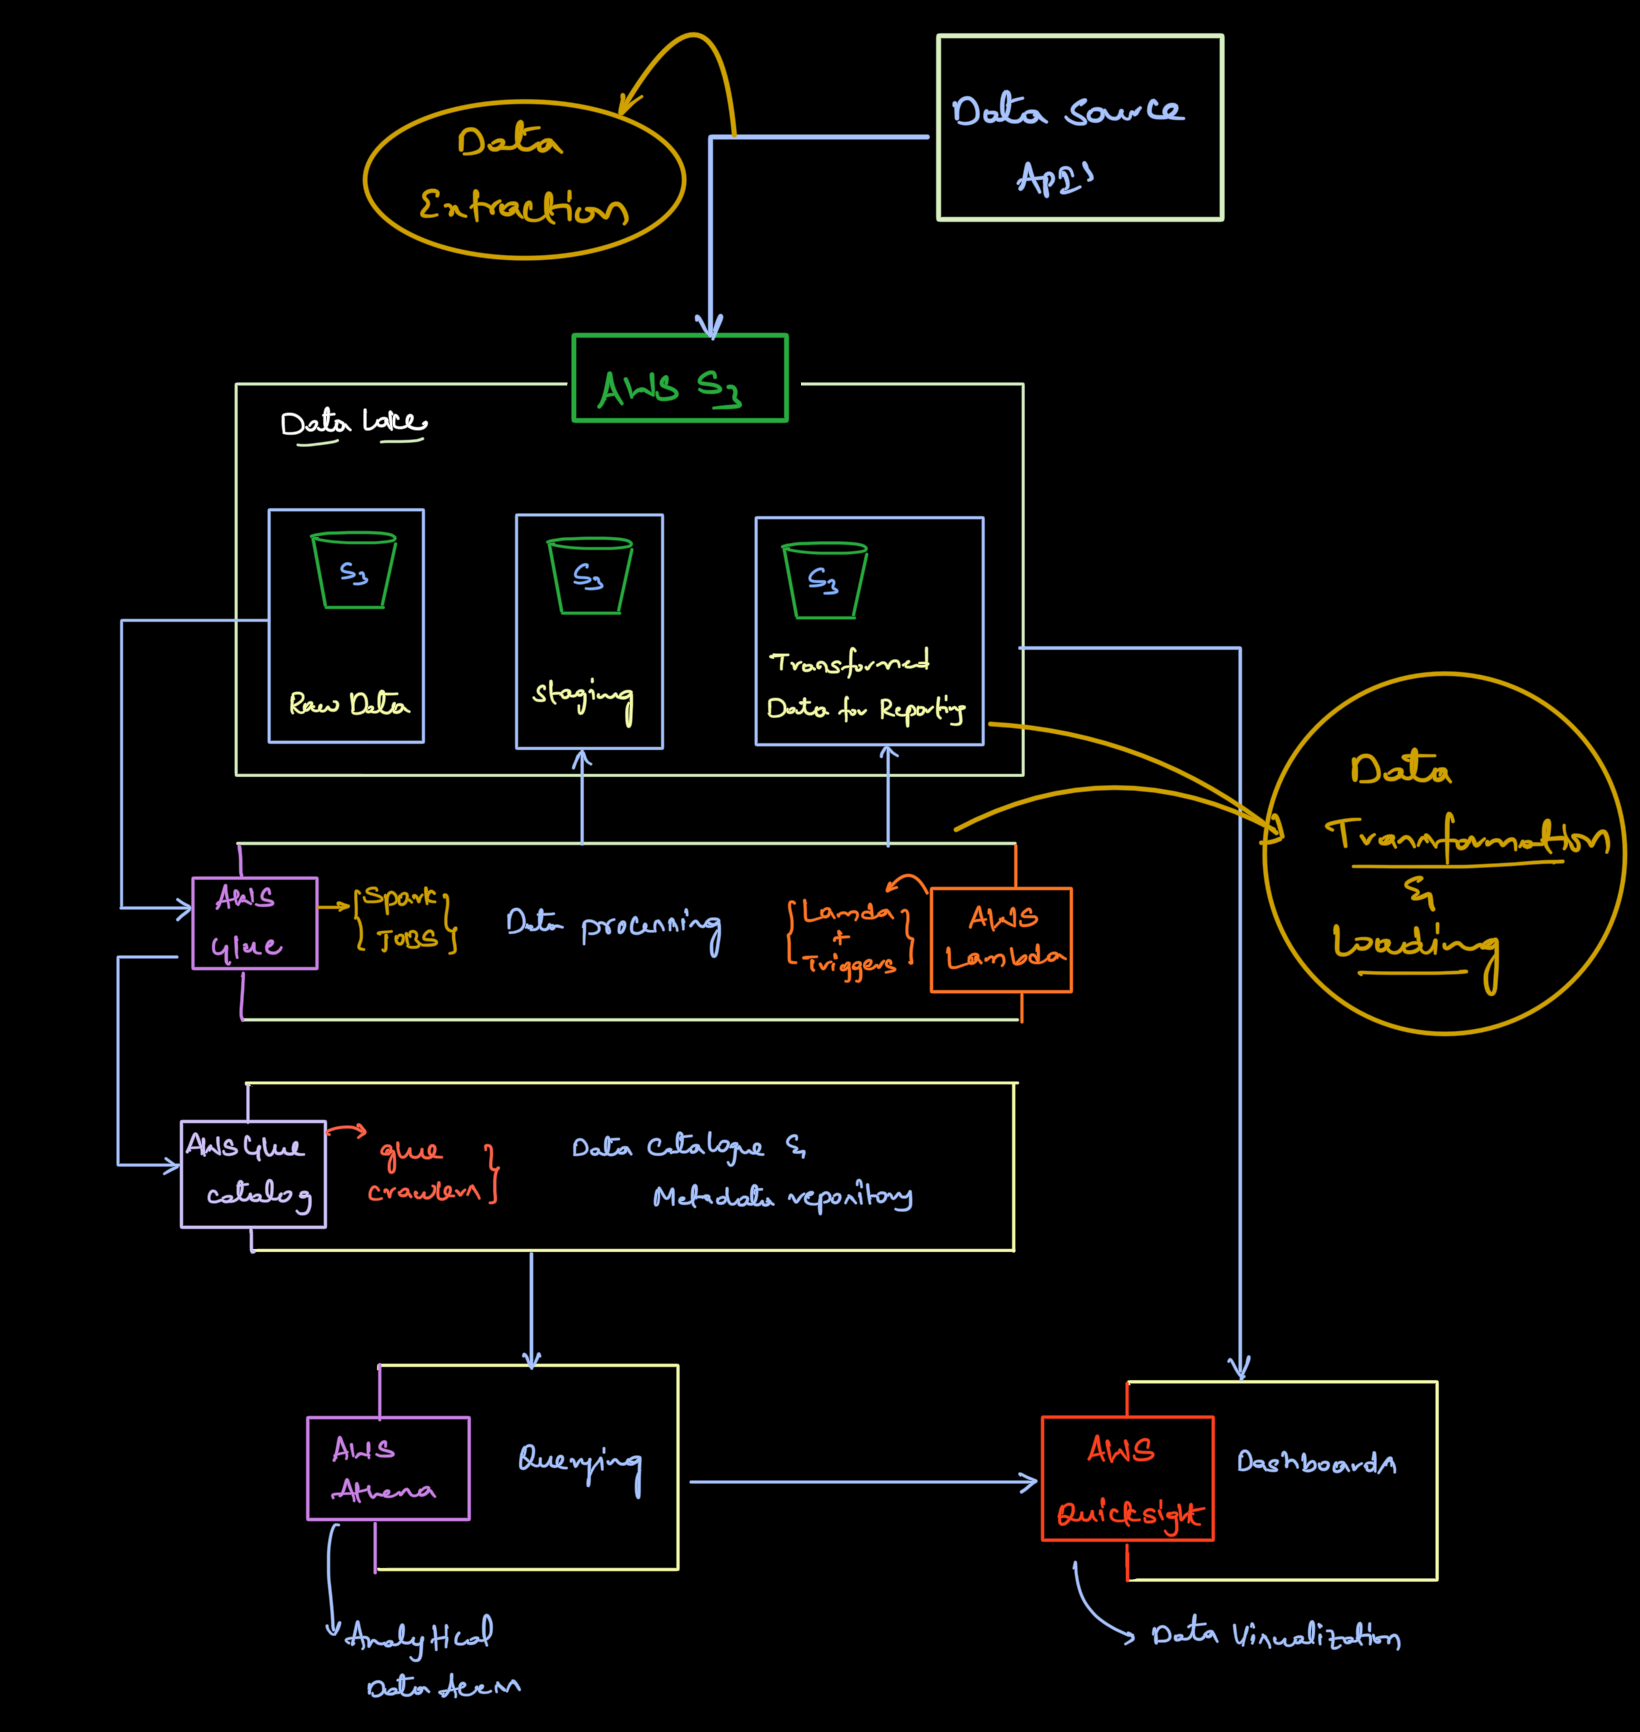 Data Source
APIs
Data
Extraction
AWS S3
Data Lake
S3
Raw Data
S3
Staging
S3
Transformed
Data for Reporting
Data
Transformation
&
Loading
AWS
Glue
Spark
JOBS
Data processing
Lamda
+
Triggers
AWS
Lambda
AWS Glue
catalog
glue
crawlers
Data Catalogue &
Metadata repository
AWS
Athena
Querying
Analytical
Data Access
AWS
Quicksight
Dashboards
Data Visualization